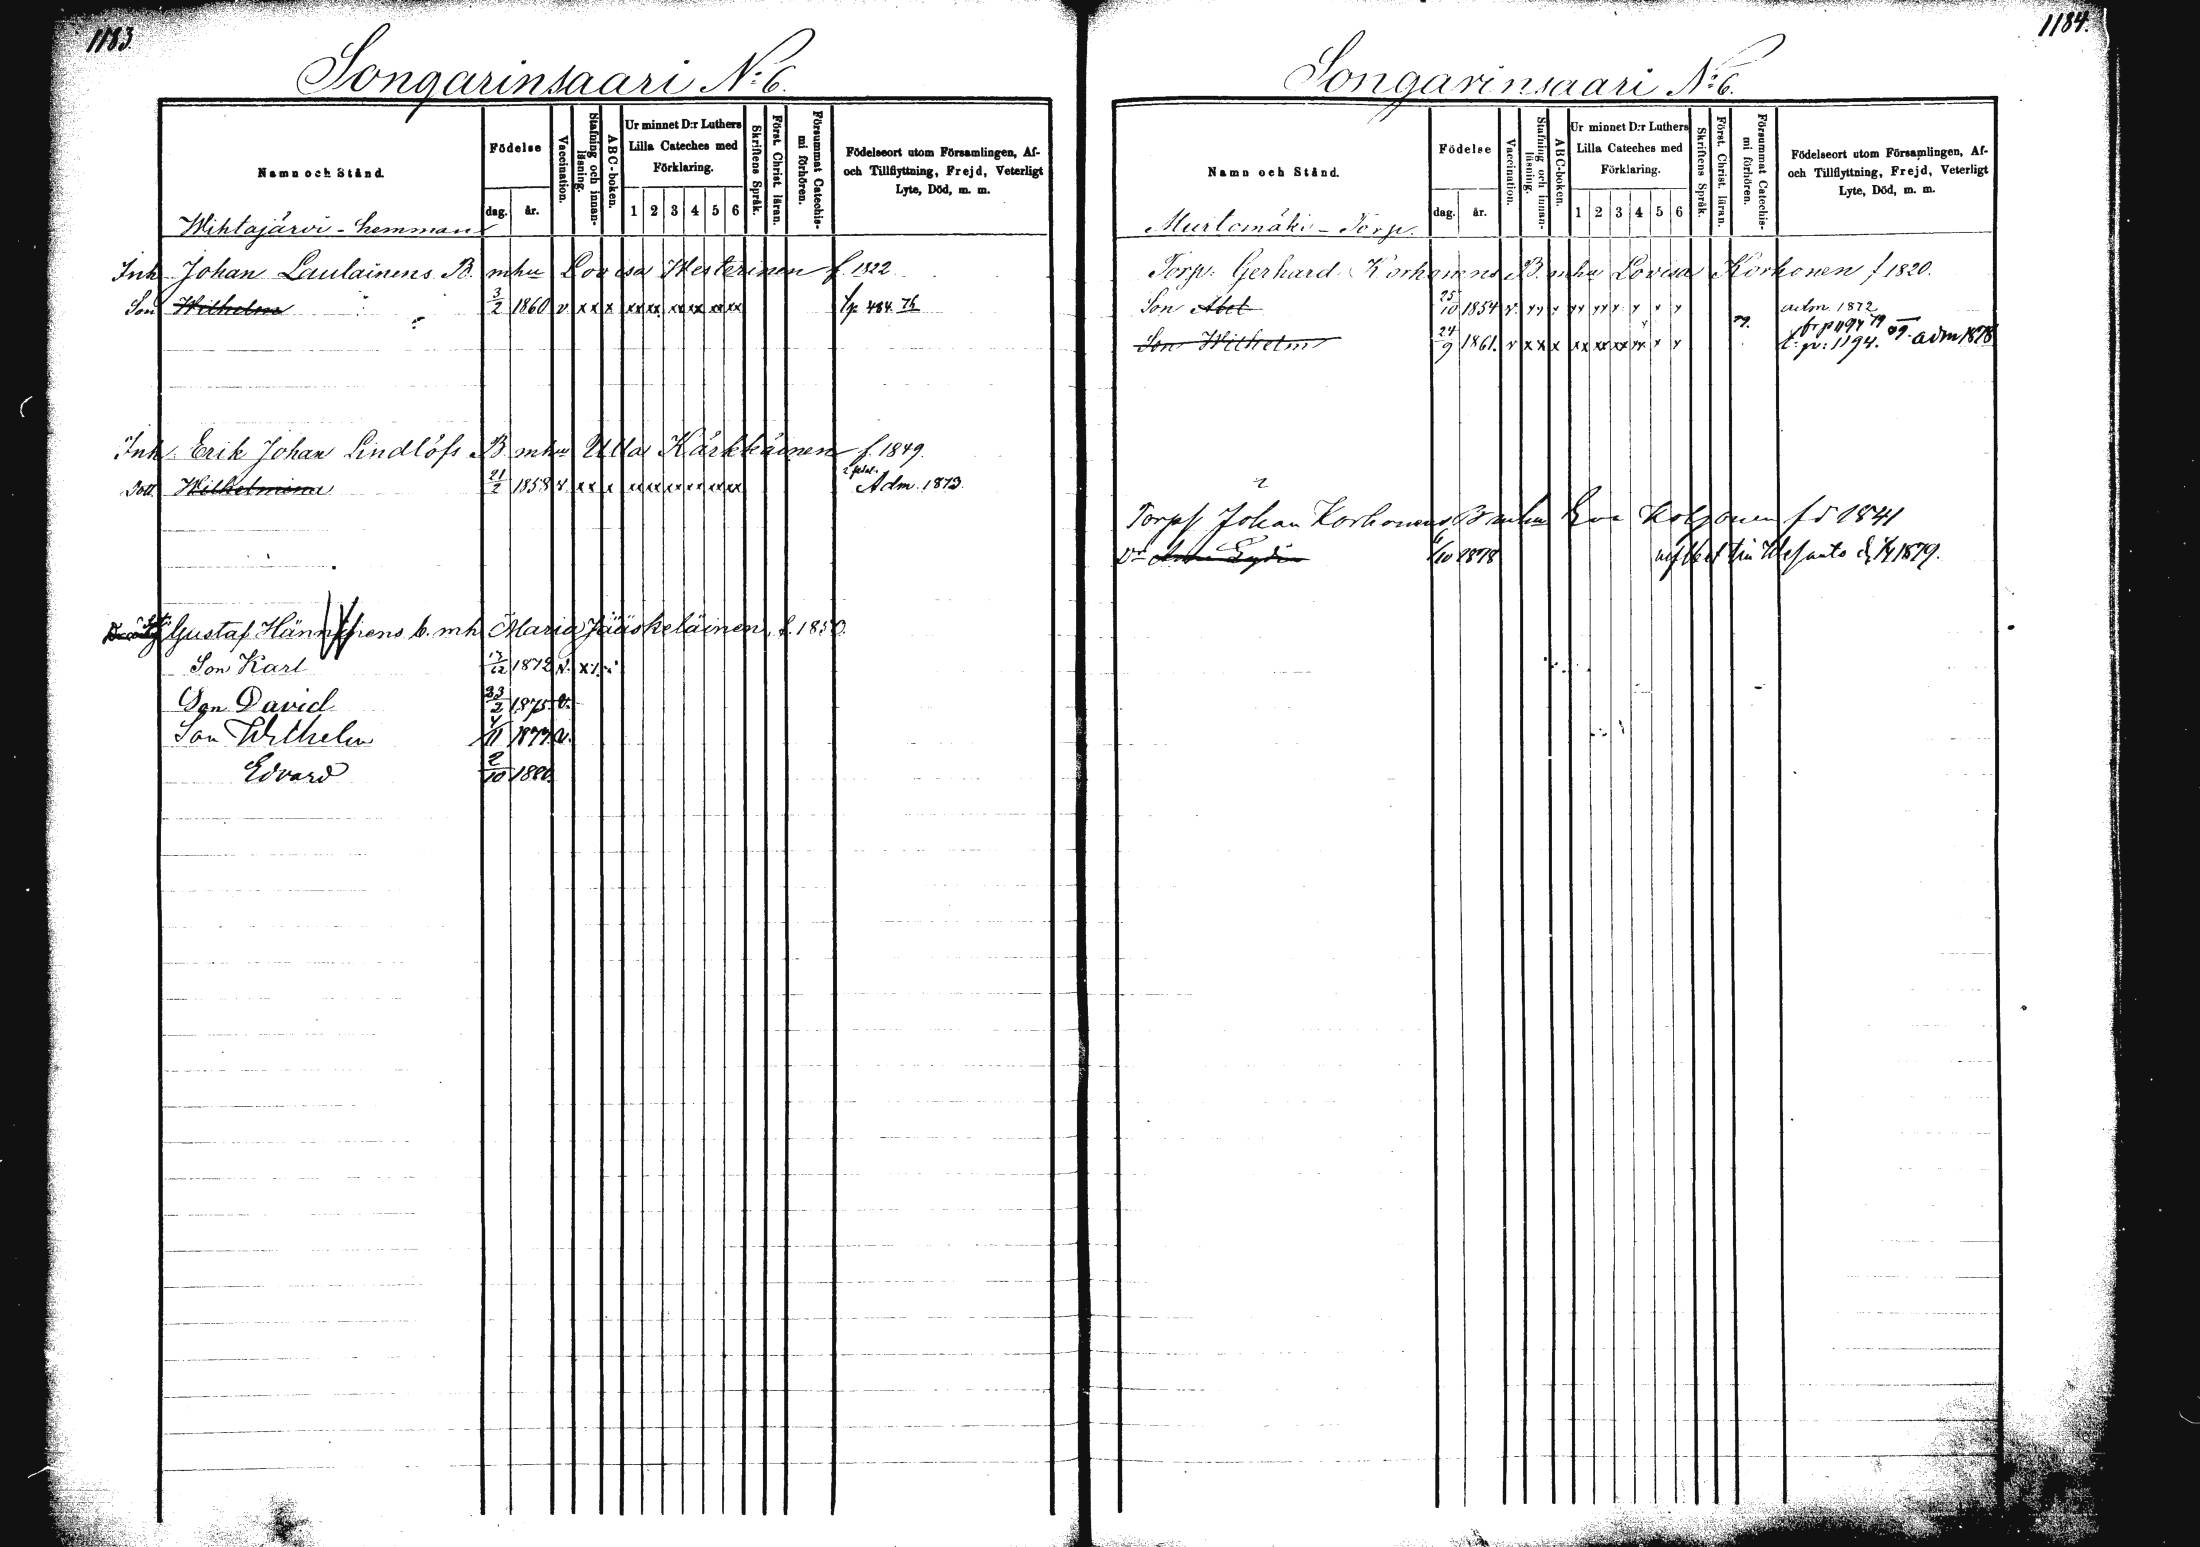 1183.
Songarinsaari N:o 6.
Namn och Stånd.
Födelse
dag. år.
Vaccination.
Stafning och innan-läsning.
ABC-boken.
Ur minnet D:r Luthers Lilla Cateches med Förklaring.
1 2 3 4 5 6
Skriftens Språk.
Först. Christ. läran.
Försummat Catechis-mi förhören.
Födelseort utom Församlingen, Af- och Tillflyttning, Frejd, Veterligt Lyte, Död, m. m.
Wihtajärvi - hemman
Inh Johan Laulainens B. mhu Lovisa Westerinen f. 1822
Son Wilhelm 3/2 1860 v xx x xx xx xx xx xx xx
Inh. Erik Johan Lindlöfs B mhu Ulla Kärkkäinen f. 1849.
Dott. Wilhelmina 21/2 1858 v xx x xx xx xx xx xx xx Adm. 1873.
Gustaf Hänninens b. mh Maria Jääskeläinen, f. 1850.
Son Karl 1872 v. xx
Son David 23/2 1875 v.
Son Wilhelm 4/11 1877 v.
Edvard 2/10 1880.
1184.
Songarinsaari N:o 6.
Namn och Stånd.
Födelse
dag. år.
Vaccination.
Stafning och innan-läsning.
ABC-boken.
Ur minnet D:r Luthers Lilla Cateches med Förklaring.
1 2 3 4 5 6
Skriftens Språk.
Först. Christ. läran.
Försummat Catechis-mi förhören.
Födelseort utom Församlingen, Af- och Tillflyttning, Frejd, Veterligt Lyte, Död, m. m.
Murtomäki - Torp.
Torp: Gerhard Korhonens B. mhu Lovisa Korhonen f 1820.
Son Abel 25/10 1854 v. adm. 1872
Son Wilhelm 24/9 1861. v xx x xx xx xx xx x x 1194. adm 1878
Torpf Johan Korhonens B mhu Eva fd 1841
Dr Lydia 10 1878 1879.